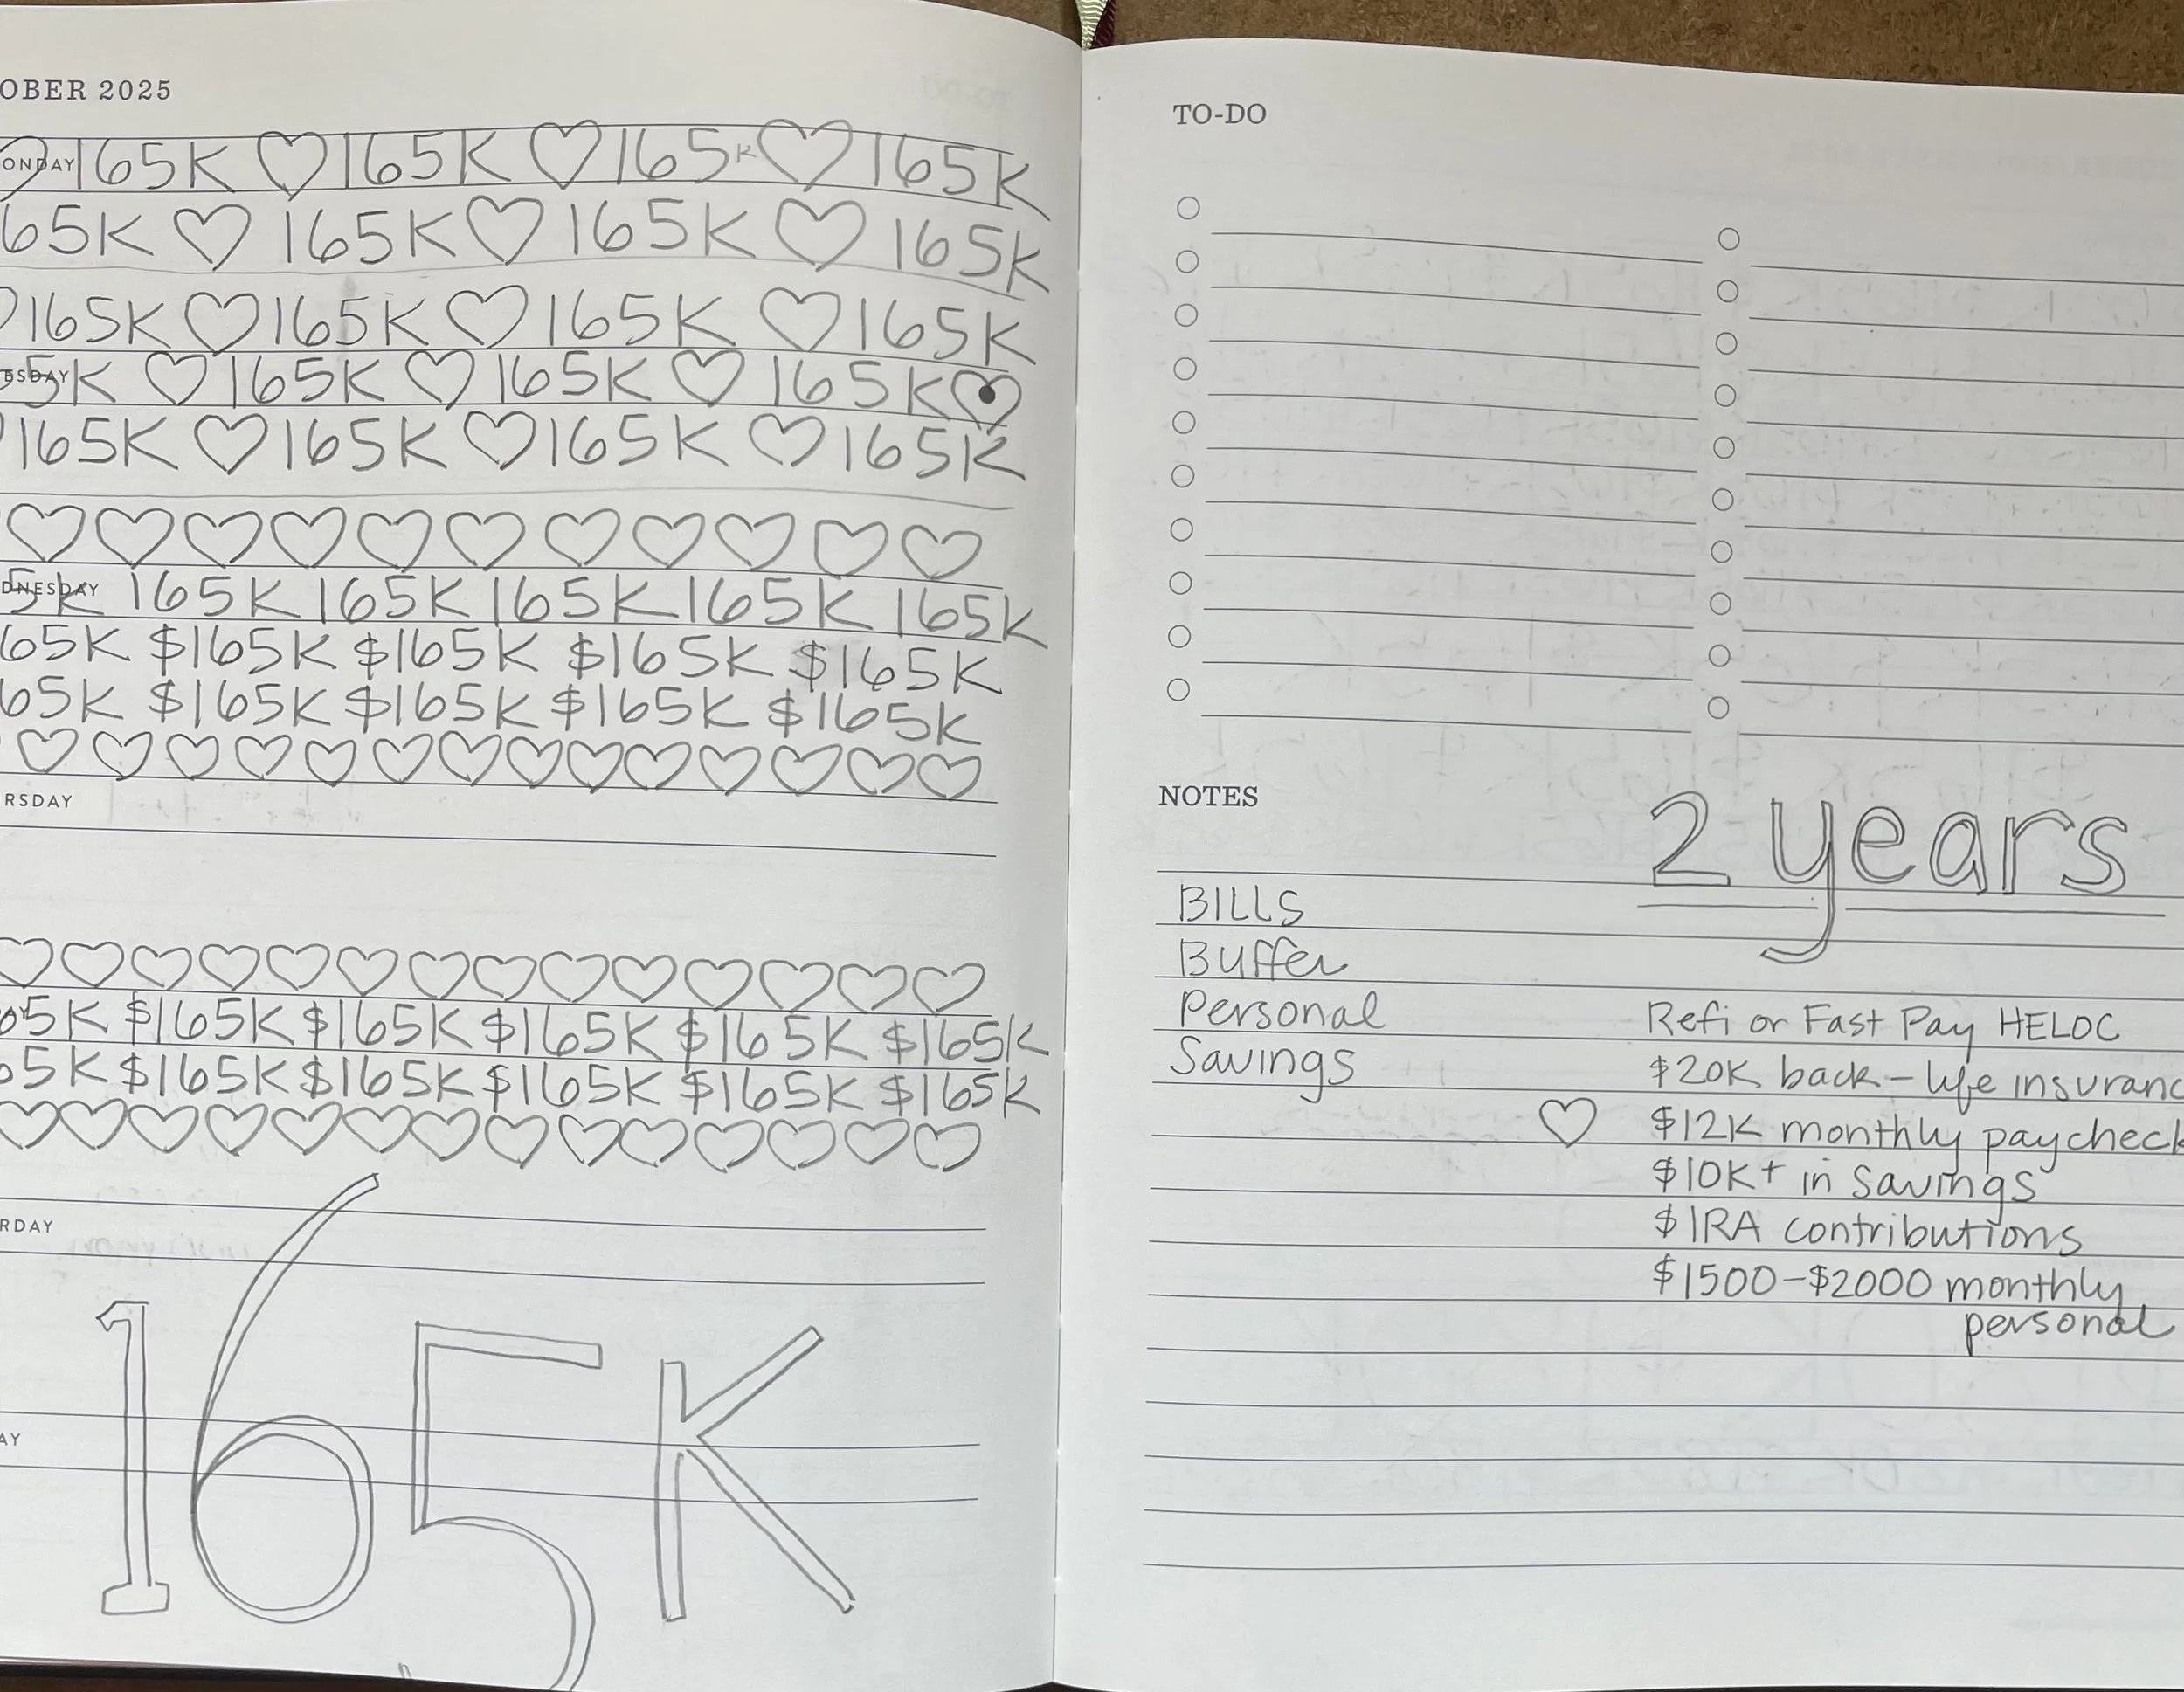 OBER 2025
ONDAY 165K ♡ 165K ♡ 165K ♡ 165K
65K ♡ 165K ♡ 165K ♡ 165K
165K ♡ 165K ♡ 165K ♡ 165K
ESDAY 5K ♡ 165K ♡ 165K ♡ 165K ♡
165K ♡ 165K ♡ 165K ♡ 165K
♡ ♡ ♡ ♡ ♡ ♡ ♡ ♡ ♡ ♡ ♡
DNESDAY 5K 165K 165K 165K 165K 165K
65K $165K $165K $165K $165K
65K $165K $165K $165K $165K
♡ ♡ ♡ ♡ ♡ ♡ ♡ ♡ ♡ ♡ ♡ ♡ ♡
RSDAY
♡ ♡ ♡ ♡ ♡ ♡ ♡ ♡ ♡ ♡ ♡ ♡ ♡ ♡
65K $165K $165K $165K $165K $165K
65K $165K $165K $165K $165K $165K
♡ ♡ ♡ ♡ ♡ ♡ ♡ ♡ ♡ ♡ ♡ ♡ ♡
RDAY
AY
165K
TO-DO
NOTES
2 years
BILLS
Buffer
Personal
Savings
Refi or Fast Pay HELOC
$20K back - life insuranc
♡ $12K monthly paycheck
$10K+ in savings
$IRA contributions
$1500-$2000 monthly
personal